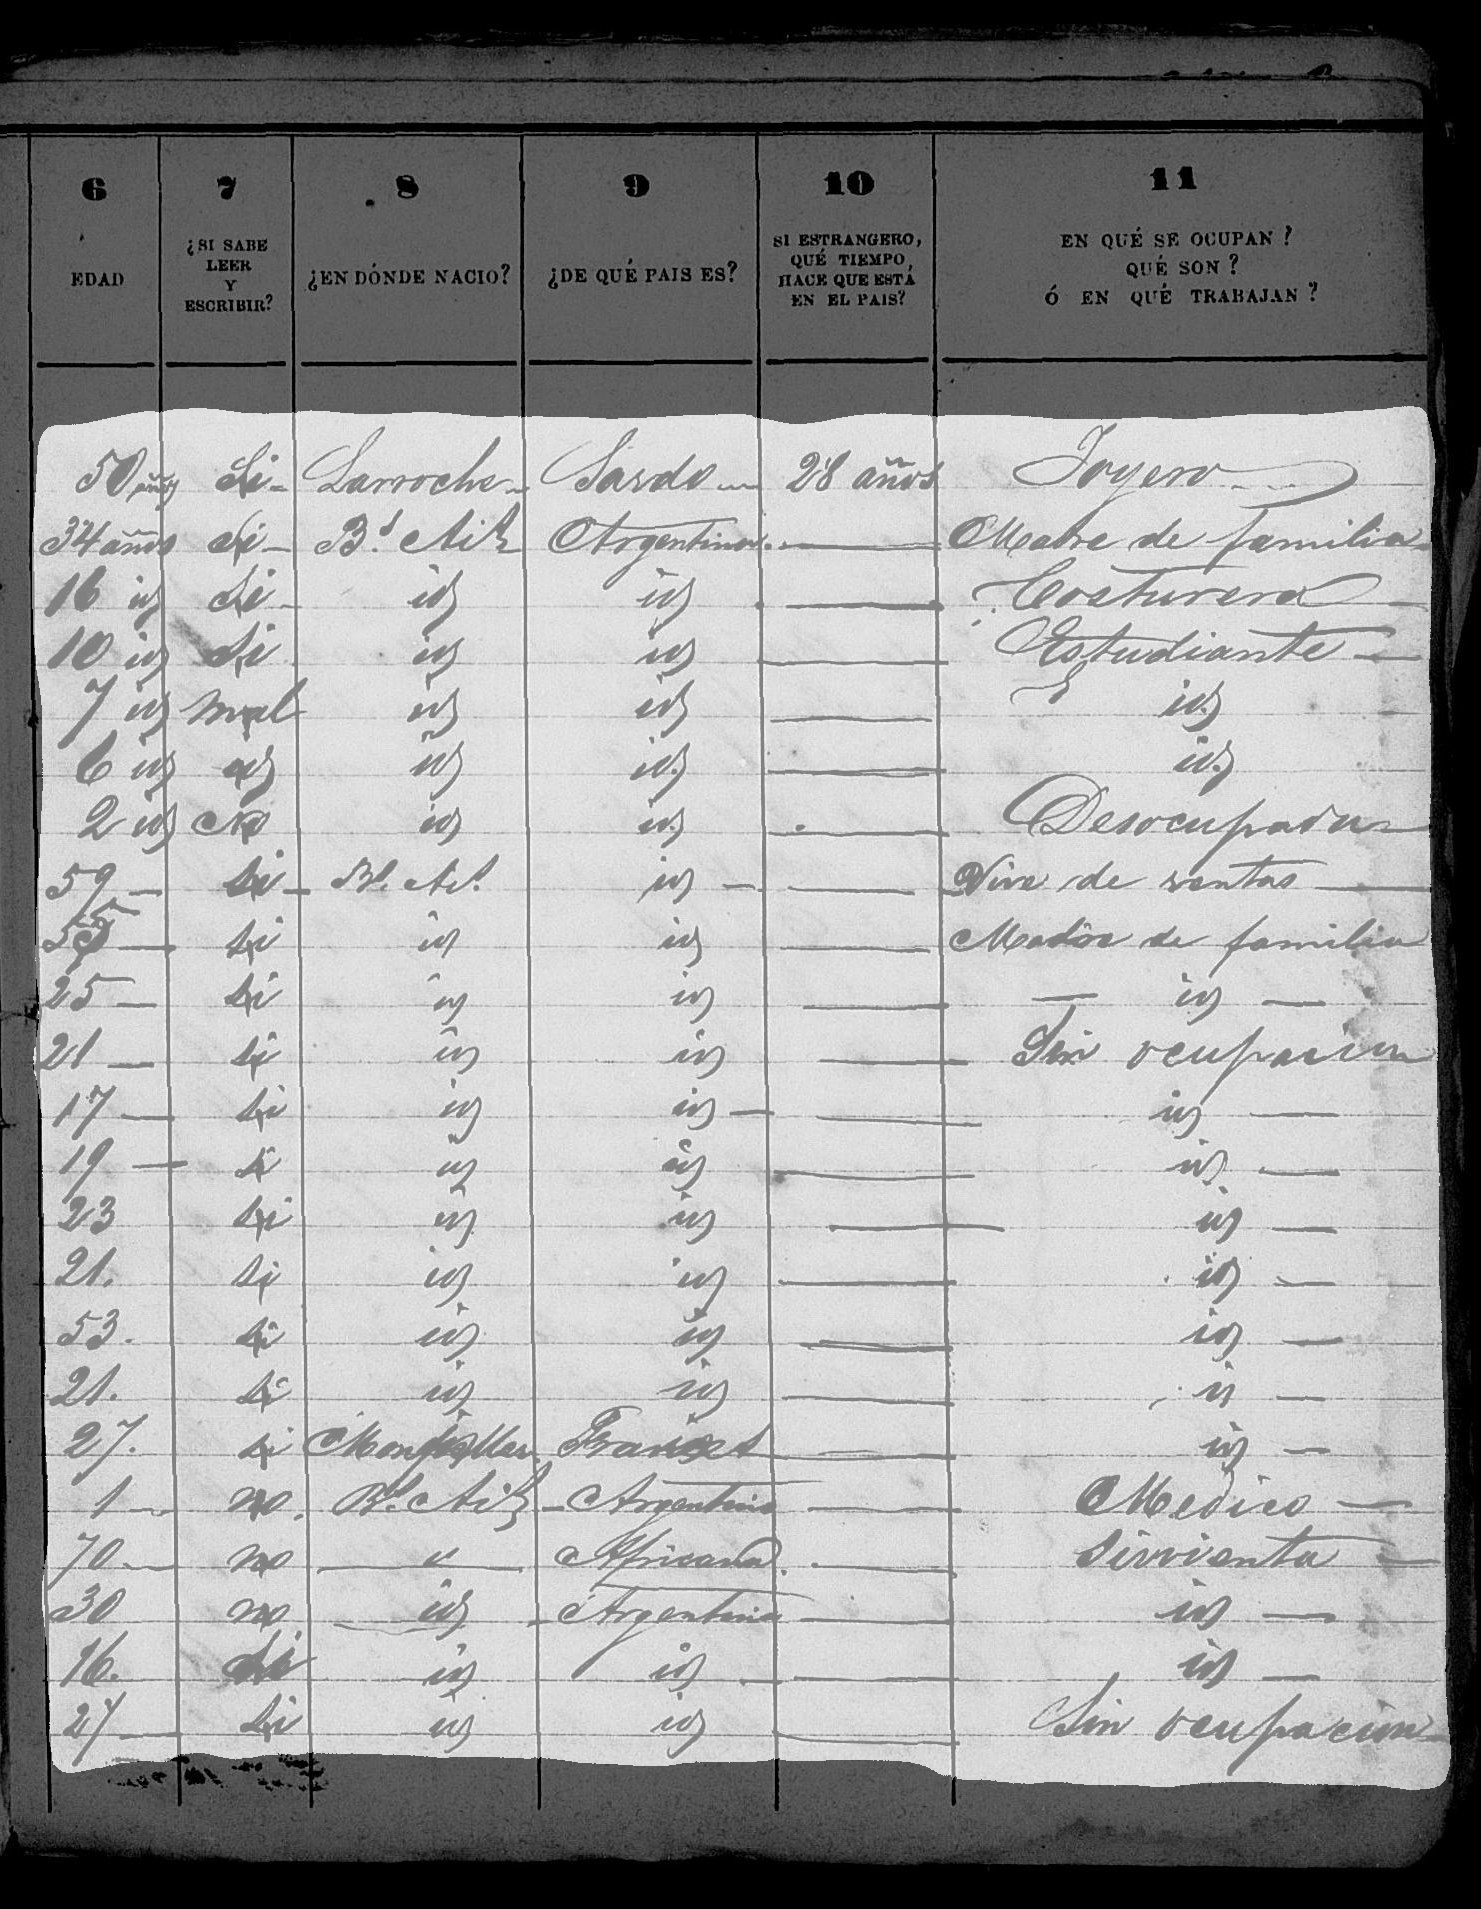 6 7 8 9 10 11
EDAD ¿SI SABE LEER Y ESCRIBIR? ¿EN DÓNDE NACIO? ¿DE QUÉ PAIS ES? SI ESTRANGERO, QUÉ TIEMPO HACE QUE ESTÁ EN EL PAIS? EN QUÉ SE OCUPAN? QUÉ SON? Ó EN QUÉ TRABAJAN?
50 años Si Larroche Sardo 28 años Joyero
34 años Si Bs. Ais Argentina Madre de familia
16 id Si id id Costurera
10 id Si id id Estudiante
7 id mal id id id
6 id id id id id
2 id No id id Desocupada
59 si Bs. As. id Vive de rentas
55 si id id Madre de familia
25 si id id id
21 si id id Sin ocupacion
17 si id id id
19 si id id id
23 si id id id
21. si id id id
53. si id id id
21. si id id id
27. si Frances id
1 no Bs. Ais Argentino Medico
70 no " Africana Sirvienta
30 no id Argentina id
16. Si id id id
27 Si id id Sin ocupacion